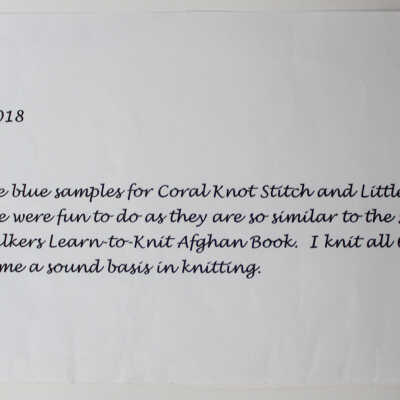 018
blue samples for Coral Knot Stitch and Little
were fun to do as they are so similar to the
Learn-to-Knit Afghan Book. I knit all
me a sound basis in knitting.